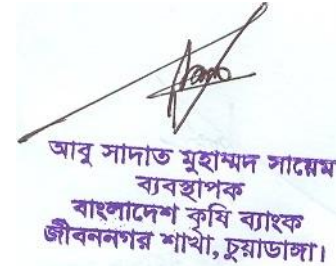 আবু সাদাত মুহাম্মদ সায়েম
ব্যবস্থাপক
বাংলাদেশ কৃষি ব্যাংক
জীবননগর শাখা, চুয়াডাঙ্গা।